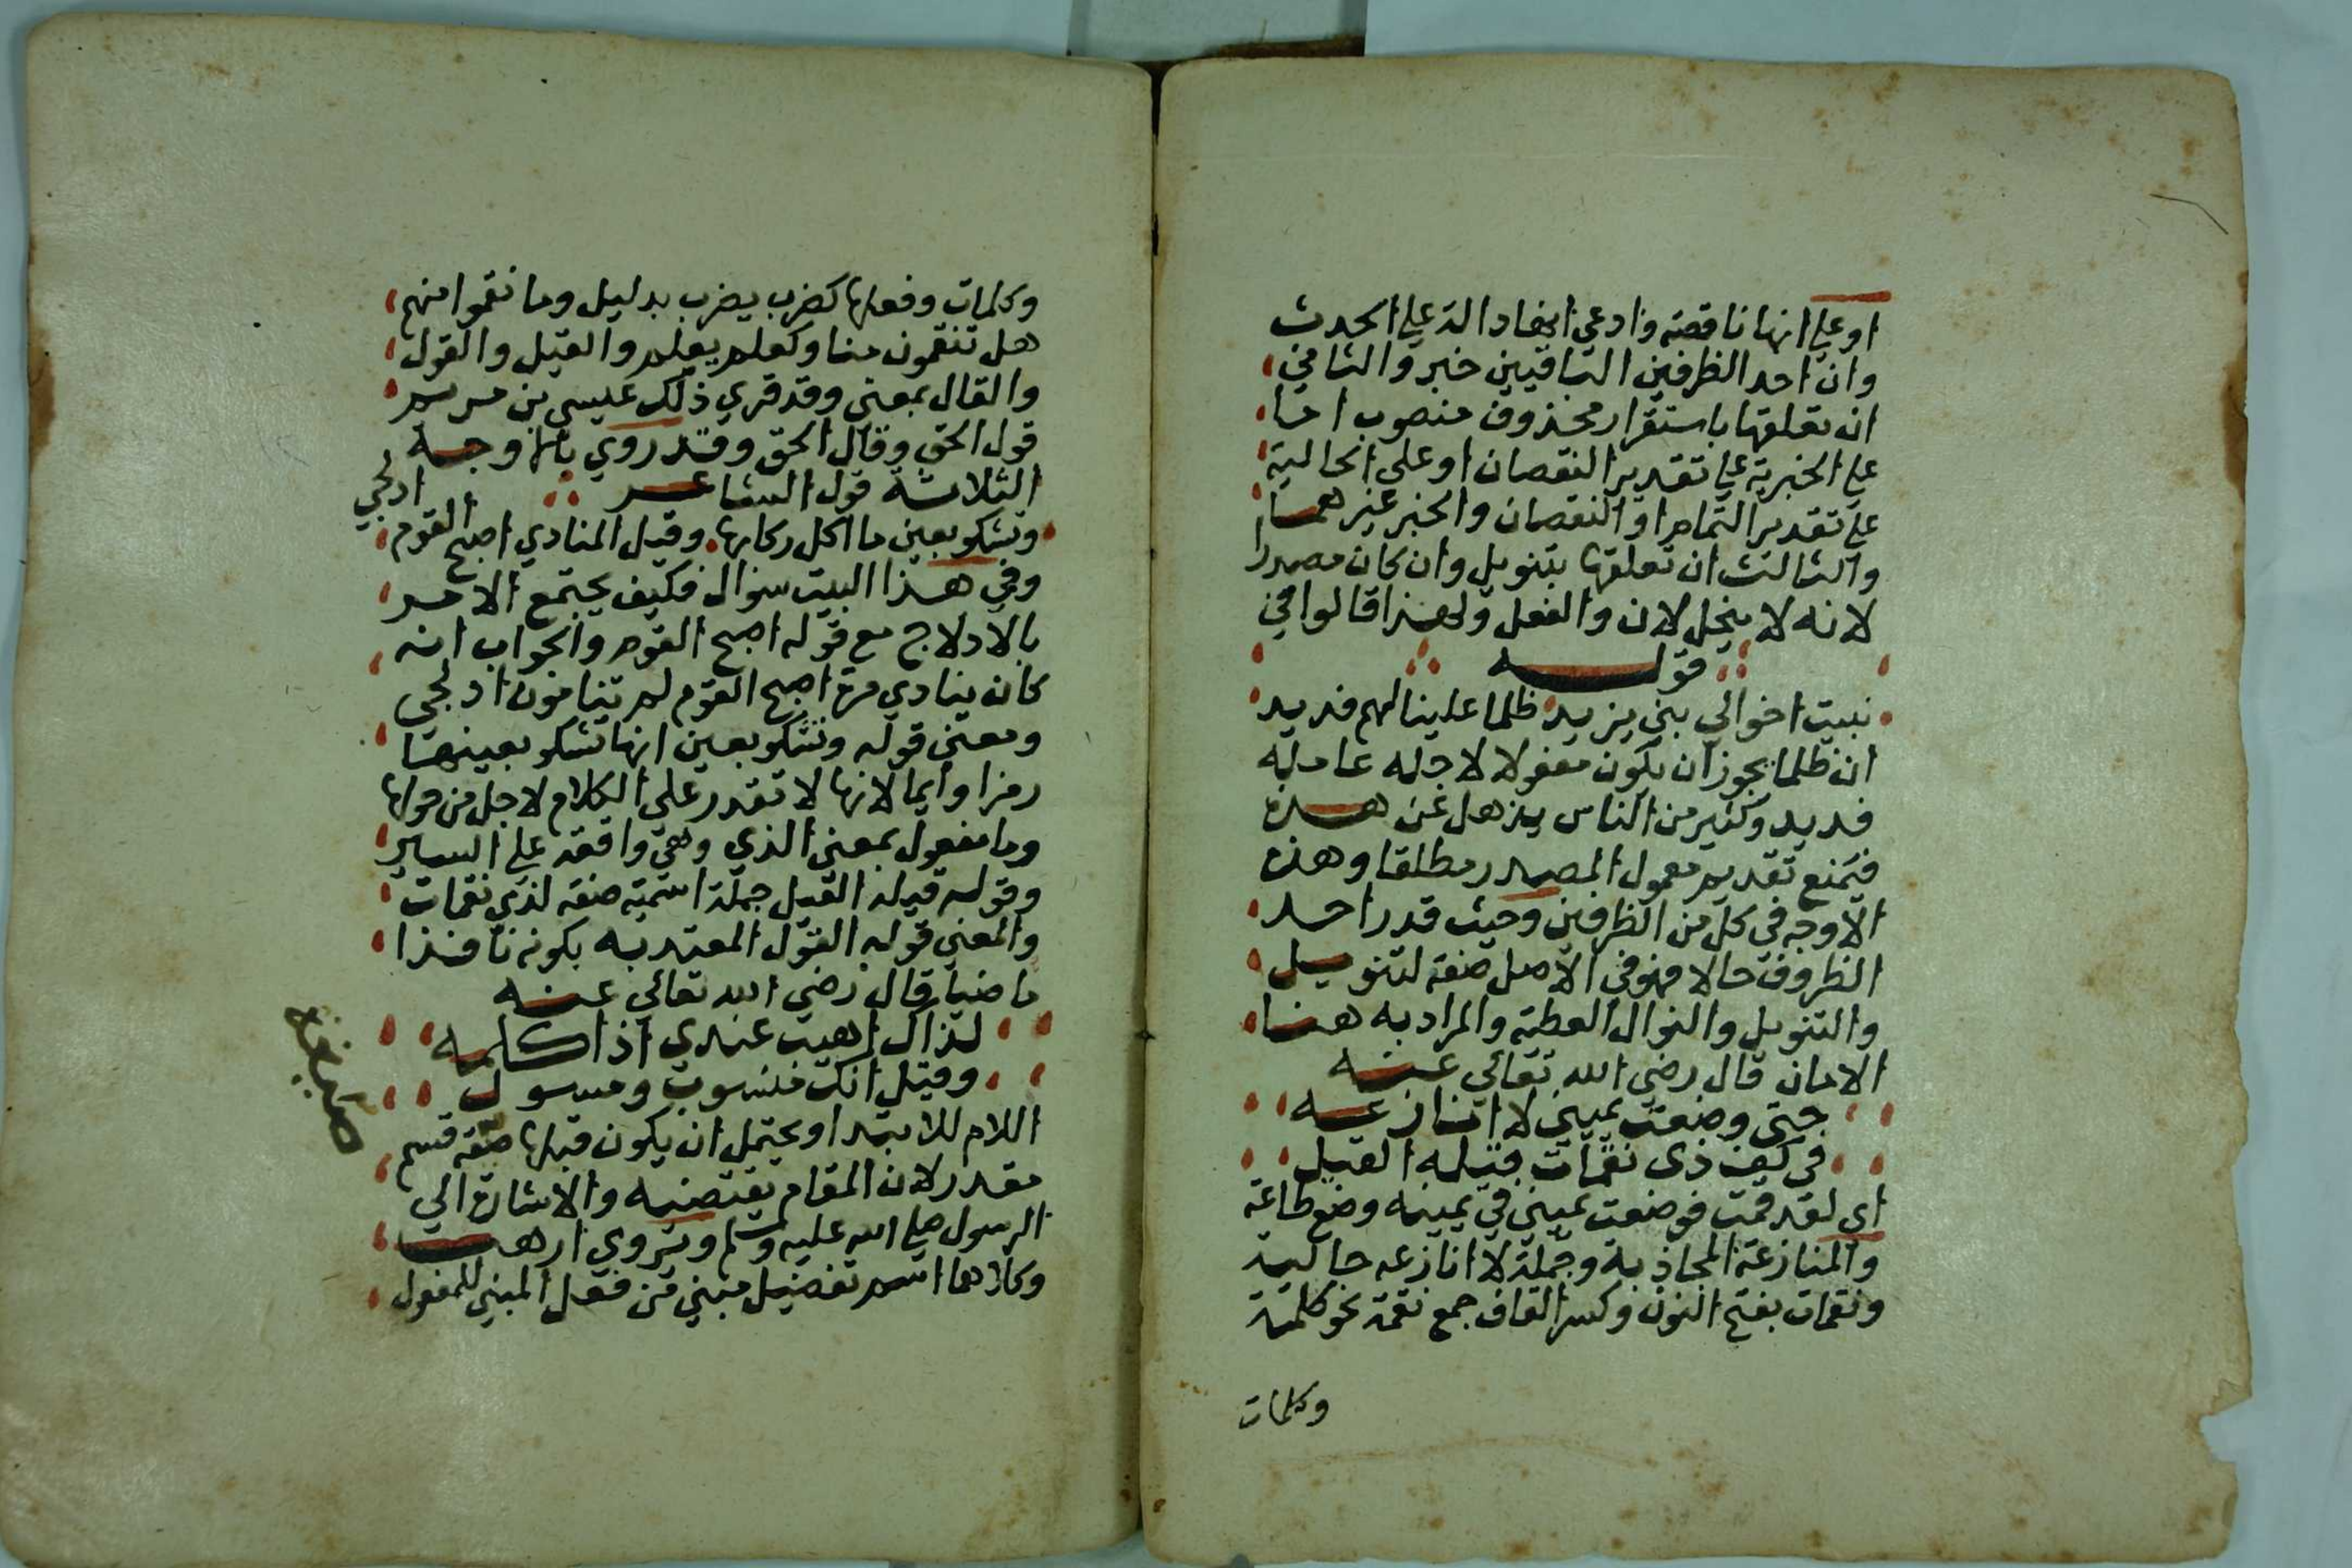 او علي انها ناقصة وادعي ايضا دالة علي الحدث
وان احد الظرفين الباقيين خبر والثاني
ان تعلقها باستقرار محذوف منصوب اما
علي الخبرية علي تقدير النقصان او علي الحالية
علي تقدير التمام او النقصان والخبر غيرهما
والثالث ان تعلقها بتنويل وان كان مصدرا
لانه لا ينحل لان والفعل ولهذا قالوا في
قوله
نبيت اخوالي بني يزيد ظلما علينا لهم فديد
ان ظلما يجوز ان يكون مفعولا لاجله عامله
فديد وكثير من الناس يذهل عن هذه
فيمنع تقديم معمول المصدر مطلقا وهذه
الاوجه في كل من الظرفين وحيث قدر احد
الظروف حالا فهو في الاصل صفة لتنويل
والتنويل والنوال العطية والمراد به هنا
الامان قال رضي الله تعالي عنه
حتي وضعت يميني لا انازعه
في كف ذي نقمات قيله القيل
اي لقد قمت فوضعت يميني في يمينه وضع طاعة
والمنازعة المجاذبة وجملة لا انازعه حالية
ونقمات بفتح النون وكسر القاف جمع نقمة نحو كلمة
وكلمات
وكلمات وفعلها كضرب يضرب بدليل وما نقموا منهم
هل تنقمون منا وكعلم يعلم والقيل والقول
والقال بمعني وقد قري ذلك عيسي بن مريم
قول الحق وقال الحق وقد روي بالاوجه
الثلاثة قول الشاعر
وتشكو بعين ما اكل ركابها وقيل المنادي اصبح القوم ادلجي
وفي هذا البيت سؤال فكيف يجتمع الامر
بالادلاج مع قوله اصبح القوم والجواب انه
كان ينادي مرة اصبح القوم لم تنامون ادلجي
ومعني قوله وتشكو بعين انها تشكو بعينها
رمزا وايما لانها لا تقدر علي الكلام لاجل من حولها
وما مفعول بمعني الذي وهي واقفة علي السير
وقوله قيله القيل جملة اسمية صفة لذي نقمات
والمعني قوله القول المعتد به بكونه نافذا
ماضيا قال رضي الله تعالي عنه
لذاك اهيب عندي اذ اكلمه
وقيل انك منسوب ومسول
اللام للابتدا ويحتمل ان يكون قبلها قسم
مقدر لان المقام يقتضيه والاشارة الي
الرسول صلي الله عليه وسلم ويروي ارهب
وكلاهما اسم تفضيل مبني من فعل المبني للمفعول